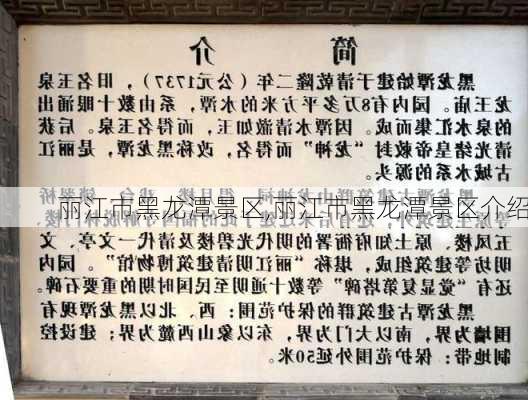 简介
黑龙潭始建于清乾隆二年(公元1737),旧名玉泉
龙王庙。园内有8万多平方米的水潭,系由数十眼涌出
的泉水汇集而成。因潭水清澈如玉,而得名玉泉。后获
清光绪皇帝敕封“龙神”而得名,改称黑龙潭,是丽江
古城水系的源头。
丽江市黑龙潭景区,丽江市黑龙潭景区介绍
五凤楼、原土知府衙署的明代光碧楼及清代一文亭、文
明坊等建筑组成,堪称“丽江明清建筑博物馆”。园内
还有“觉显复第塔碑”等数十通明至民国时期的重要石碑。
黑龙潭古建筑群的保护范围:西、北以黑龙潭现有
围墙为界,南以大门为界,东以象山西麓为界;建设控
制地带:保护范围外延50米。